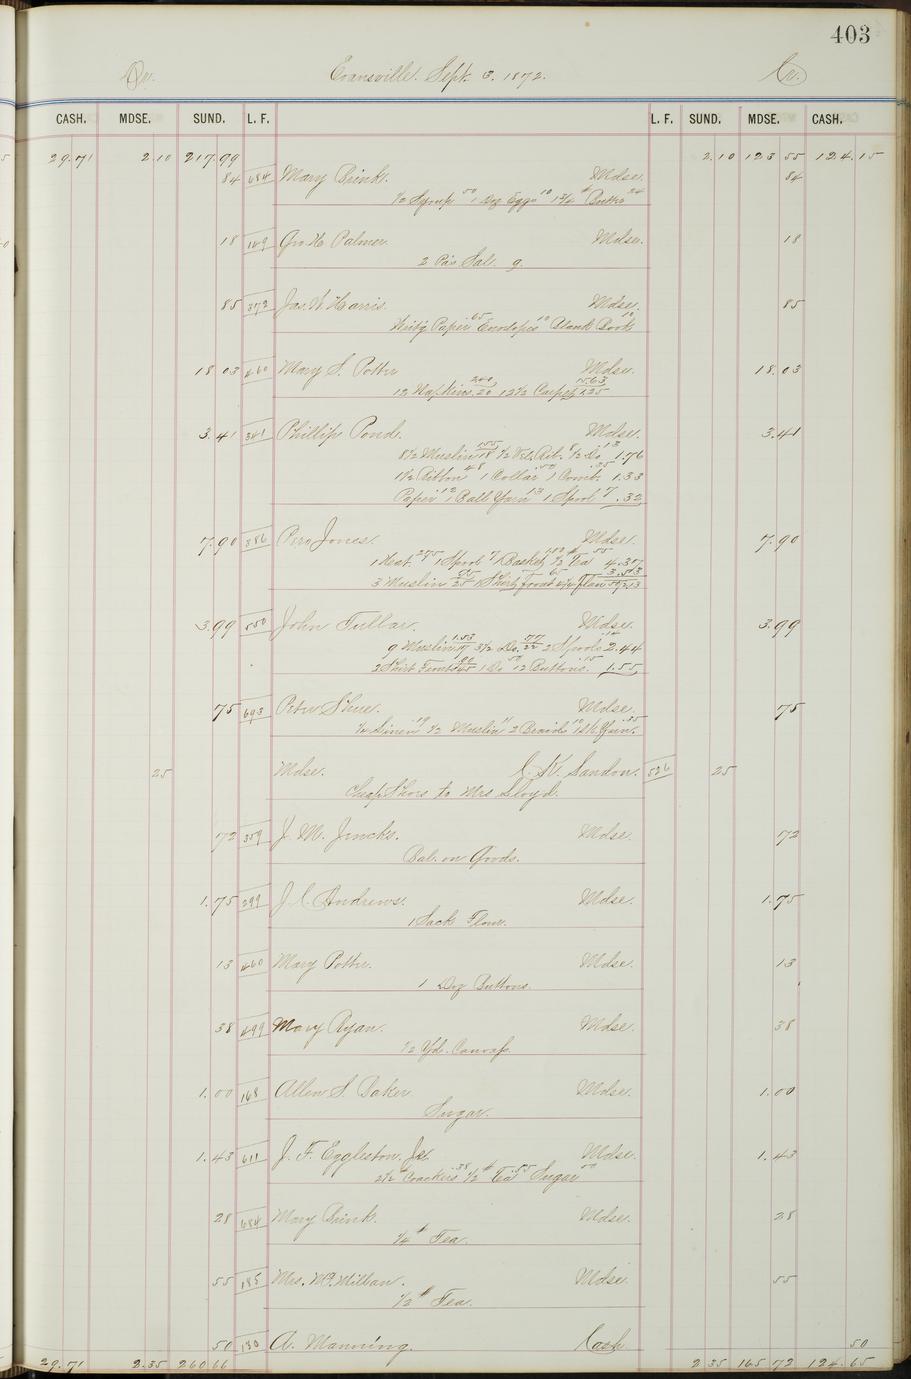 403
Dr. Evansville. Sept. 3. 1872. Cr.
CASH. MDSE. SUND. L. F. L. F. SUND. MDSE. CASH.
29.71 2.10 217.99 2.10 123 55 124.15
84 684 Mary Brink. Mdse. 84
1/2 Syrup 50 1 Doz Eggs 10 1 3/4 # Butter 24
18 149 Geo. H. Palmer. Mdse. 18
2 Prs Sal. 9.
85 372 Jas. W. Harris. Mdse. 85
Writg Paper .65 Envelopes 10 Blank Book 10
18 03 460 Mary S. Potter Mdse. 18.03
12 Napkins 240/20 12 1/2 Carpet 15.63/1.25
3.41 341 Phillip Pond. Mdse. 3.41
8 1/2 Muslin 155/18 1/2 Vel. Rib. 8 1/2 Do 13 1.76
1 1/2 Ribbon 48 1 Collar 50 1 Comb. .35 1.33
Paper 12 1 Ball Yarn 13 1 Spool 7 .32
7.90 386 Jones. Mdse. 7.90
1 Heat. 275 1 Spool 7 1 Basket 1/2 # Tea 55 4.37
3 Muslin 1 Shirt Front 65 Flan 3.53
3.99 550 John Tullar. Mdse. 3.99
9 Muslin 1.53/17 3 1/2 Do. 77/22 2 Spools .14 2.44
2 Shirt Fronts 90/45 1 Do 50 12 Buttons. .15 1.55
75 693 Peter Shue. Mdse. 75
1/4 Linen 19 1/2 Muslin 11 2 Braids 10 1 Sk. Yarn. .35
25 Mdse. C. K. Sandon. 526 25
Cheap Shoes to Mrs Lloyd.
72 359 J. M. Jincks. Mdse. 72
Bal. on Goods.
1.75 299 J. C. Andrews. Mdse. 1.75
1 Sack Flour.
13 460 Mary Potter. Mdse. 13
1 Doz Buttons.
38 499 Mary Ryan. Mdse. 38
1/2 Yd. Canvass.
1.00 168 Allen S. Baker Mdse. 1.00
Sugar.
1.43 611 J. F. Eggleston. Jr. Mdse. 1.43
2 1/2 # Crackers .38 1/2 # Tea 55 Sugar 50
28 684 Mary Brink. Mdse. 28
1/4 # Tea.
55 185 Mrs. Mc.Millan. Mdse. 55
1/2 # Tea.
50 130 A. Manning. Cash 50
29.71 2.35 260 66 2 35 165 72 124.65